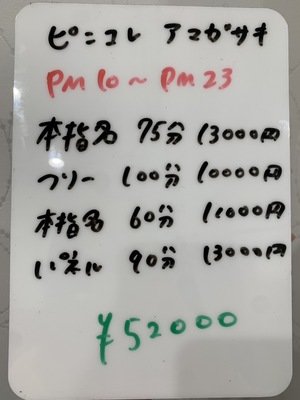 ピンコレ アマガサキ
PM 10～PM 23
本指名 75分 13000円
フリー 100分 10000円
本指名 60分 11000円
パネル 90分 13000円
¥52000